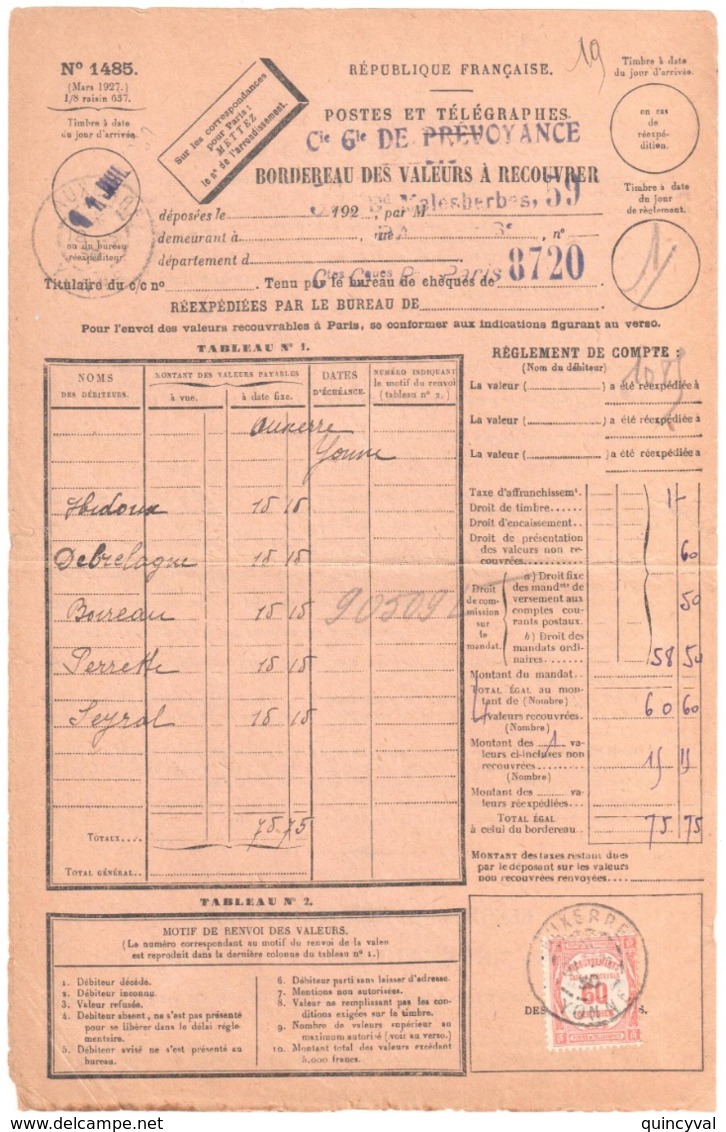 Nº 1485.
(Mars 1927.)
1/8 raisin 637.
Timbre à date
du jour d'arrivée.
ou du bureau
réexpéditeur.
Sur les correspondances
pour Paris :
METTEZ
le nº de l'arrondissement.
19
RÉPUBLIQUE FRANÇAISE.
POSTES ET TÉLÉGRAPHES.
Cie Gle DE PRÉVOYANCE
BORDEREAU DES VALEURS À RECOUVRER
Bd Malesherbes, 59
déposées le 192 , par M
demeurant à , rue , nº
département d
Ctes Cques P. Paris 8720
Titulaire du c/c nº Tenu par le bureau de chèques de
RÉEXPÉDIÉES PAR LE BUREAU DE
Pour l'envoi des valeurs recouvrables à Paris, se conformer aux indications figurant au verso.
Timbre à date
du jour d'arrivée.
en cas
de
réexpé-
dition.
Timbre à date
du jour
de règlement.
TABLEAU Nº 1.
NOMS
DES DÉBITEURS.
MONTANT DES VALEURS PAYABLES
à vue. à date fixe.
DATES
D'ÉCHÉANCE.
NUMÉRO INDIQUANT
le motif du renvoi
(tableau nº 2.)
Auxerre
Yonne
15 15
Debrelagne 15 15
Boireau 15 15
Perrette 15 15
Seyrol 15 15
TOTAUX.... 75 75
TOTAL GÉNÉRAL..
RÈGLEMENT DE COMPTE :
(Nom du débiteur)
La valeur ( ) a été réexpédiée à
La valeur ( ) a été réexpédiée à
La valeur ( ) a été réexpédiée à
Taxe d'affranchissemt. 1 -
Droit de timbre..
Droit d'encaissement..
Droit de présentation
des valeurs non re-
couvrées. 60
Droit
de com-
mission
sur
le
mandat.
a) Droit fixe
des mandats de
versement aux
comptes cou-
rants postaux. 50
b) Droit des
mandats ordi-
naires. 58 50
Montant du mandat.
TOTAL ÉGAL au mon-
tant de (Nombre)
4 valeurs recouvrées. 60 60
(Nombre)
Montant des 1 va-
leurs ci-incluses non
recouvrées 15 15
(Nombre)
Montant des va-
leurs réexpédiées
TOTAL ÉGAL
à celui du bordereau 75 75
MONTANT des taxes restant dues
par le déposant sur les valeurs
non recouvrées renvoyées.
TABLEAU Nº 2.
MOTIF DE RENVOI DES VALEURS.
(Le numéro correspondant au motif du renvoi de la valeur
est reproduit dans la dernière colonne du tableau nº 1.)
1. Débiteur décédé.
2. Débiteur inconnu.
3. Valeur refusée.
4. Débiteur absent, ne s'est pas présenté
pour se libérer dans le délai régle-
mentaire.
5. Débiteur avisé ne s'est présenté au
bureau.
6. Débiteur parti sans laisser d'adresse.
7. Mentions non autorisées.
8. Valeur ne remplissant pas les con-
ditions exigées sur le timbre.
9. Nombre de valeurs supérieur au
maximum autorisé (voir au verso.)
10. Montant total des valeurs excédant
5,000 francs.
AUXERRE
YONNE
50
DES
quincyval